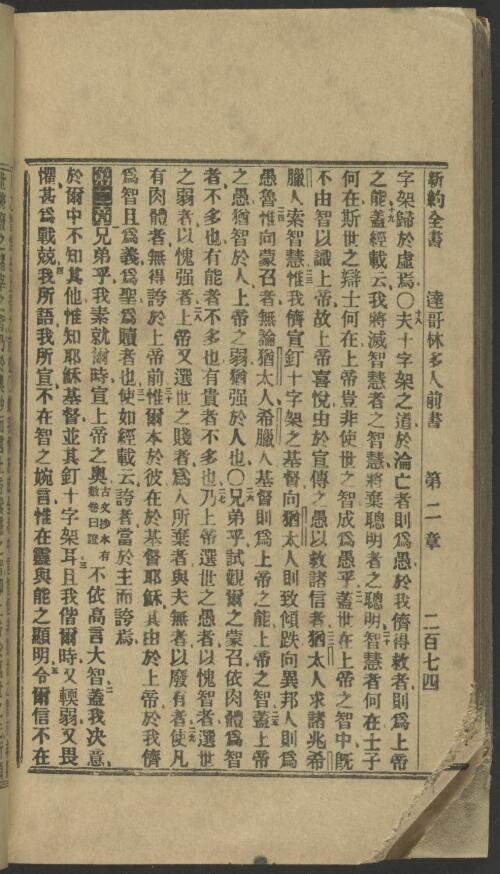 新約全書　達哥林多人前書　第二章　二百七四
字架歸於虛焉○夫十字架之道於淪亡者則爲愚於我儕得救者則爲上帝
之能蓋經載云我將滅智慧者之智慧將棄聰明者之聰明智慧者何在士子
何在斯世之辯士何在上帝豈非使世之智成爲愚乎蓋世在上帝之智中旣
不由智以識上帝故上帝喜悅由於宣傳之愚以救諸信者猶太人求諸兆希
臘人索智慧惟我儕宣釘十字架之基督向猶太人則致傾跌向異邦人則爲
愚魯惟向蒙召者無論猶太人希臘人基督則爲上帝之能上帝之智蓋上帝
之愚猶智於人上帝之弱猶强於人也○兄弟乎試觀爾之蒙召依肉體爲智
者不多也有能者不多也有貴者不多也乃上帝選世之愚者以愧智者選世
之弱者以愧强者上帝又選世之賤者爲人所棄者與夫無者以廢有者使凡
有肉體者無得誇於上帝前惟爾本於彼在於基督耶穌其由於上帝於我儕
爲智且爲義爲聖爲贖者也使如經載云誇者當於主而誇焉
第二章兄弟乎我素就爾時宣上帝之奧古文抄本有數卷曰證不依高言大智蓋我决意
於爾中不知其他惟知耶穌基督並其釘十字架耳且我偕爾時又輭弱又畏
懼甚爲戰兢我所語我所宣不在智之婉言惟在靈與能之顯明令爾信不在